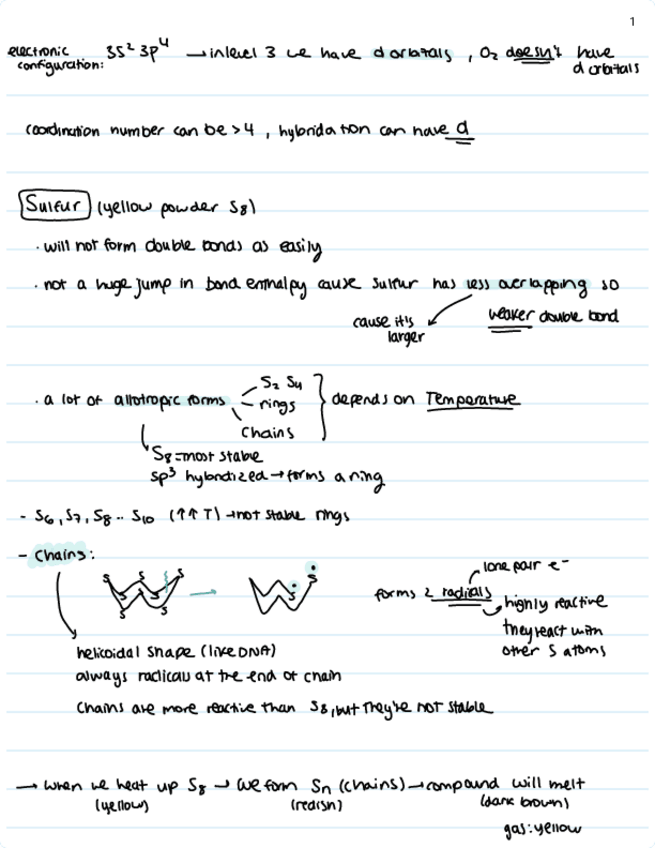 1
electronic configuration: 3S² 3p⁴ → in level 3 we have d orbitals , O₂ doesn't have d orbitals
coordination number can be >4 , hybridation can have d
Sulfur (yellow powder S₈)
· will not form double bonds as easily
· not a huge jump in bond enthalpy cause sulfur has less overlapping so weaker double bond
cause it's larger
· a lot of allotropic forms
S₂ S₄
rings
chains
depends on Temperature
S₈ = most stable
sp³ hybridized → forms a ring
- S₆, S₇, S₈ .. S₁₀ (↑↑ T) → not stable rings
- Chains:
S S S S S S S
→
S S
forms 2 radials
lone pair e⁻
highly reactive
they react with other S atoms
helicoidal shape (like DNA)
always radicals at the end of chain
Chains are more reactive than S₈, but they're not stable
→ when we heat up S₈ → we form Sn (chains) → compound will melt
(yellow) (redish) (dark brown)
gas: yellow